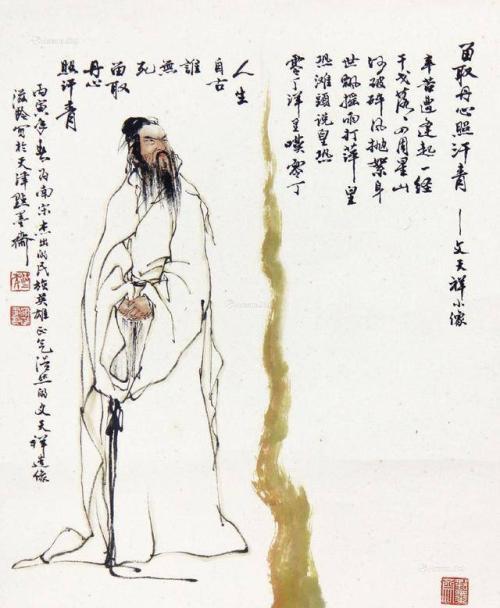 留取丹心照汗青
—文天祥小像
辛苦遭逢起一经
干戈落落四周星山
河破碎风抛絮身
世飘摇雨打萍皇
恐滩头说皇恐
零丁洋里嘆零丁
人生
自古
誰
無
死
留取
丹心
照汗青
丙寅年春为南宋杰出的民族英雄正气浩然的文天祥造像
滋龄写於天津點墨齋